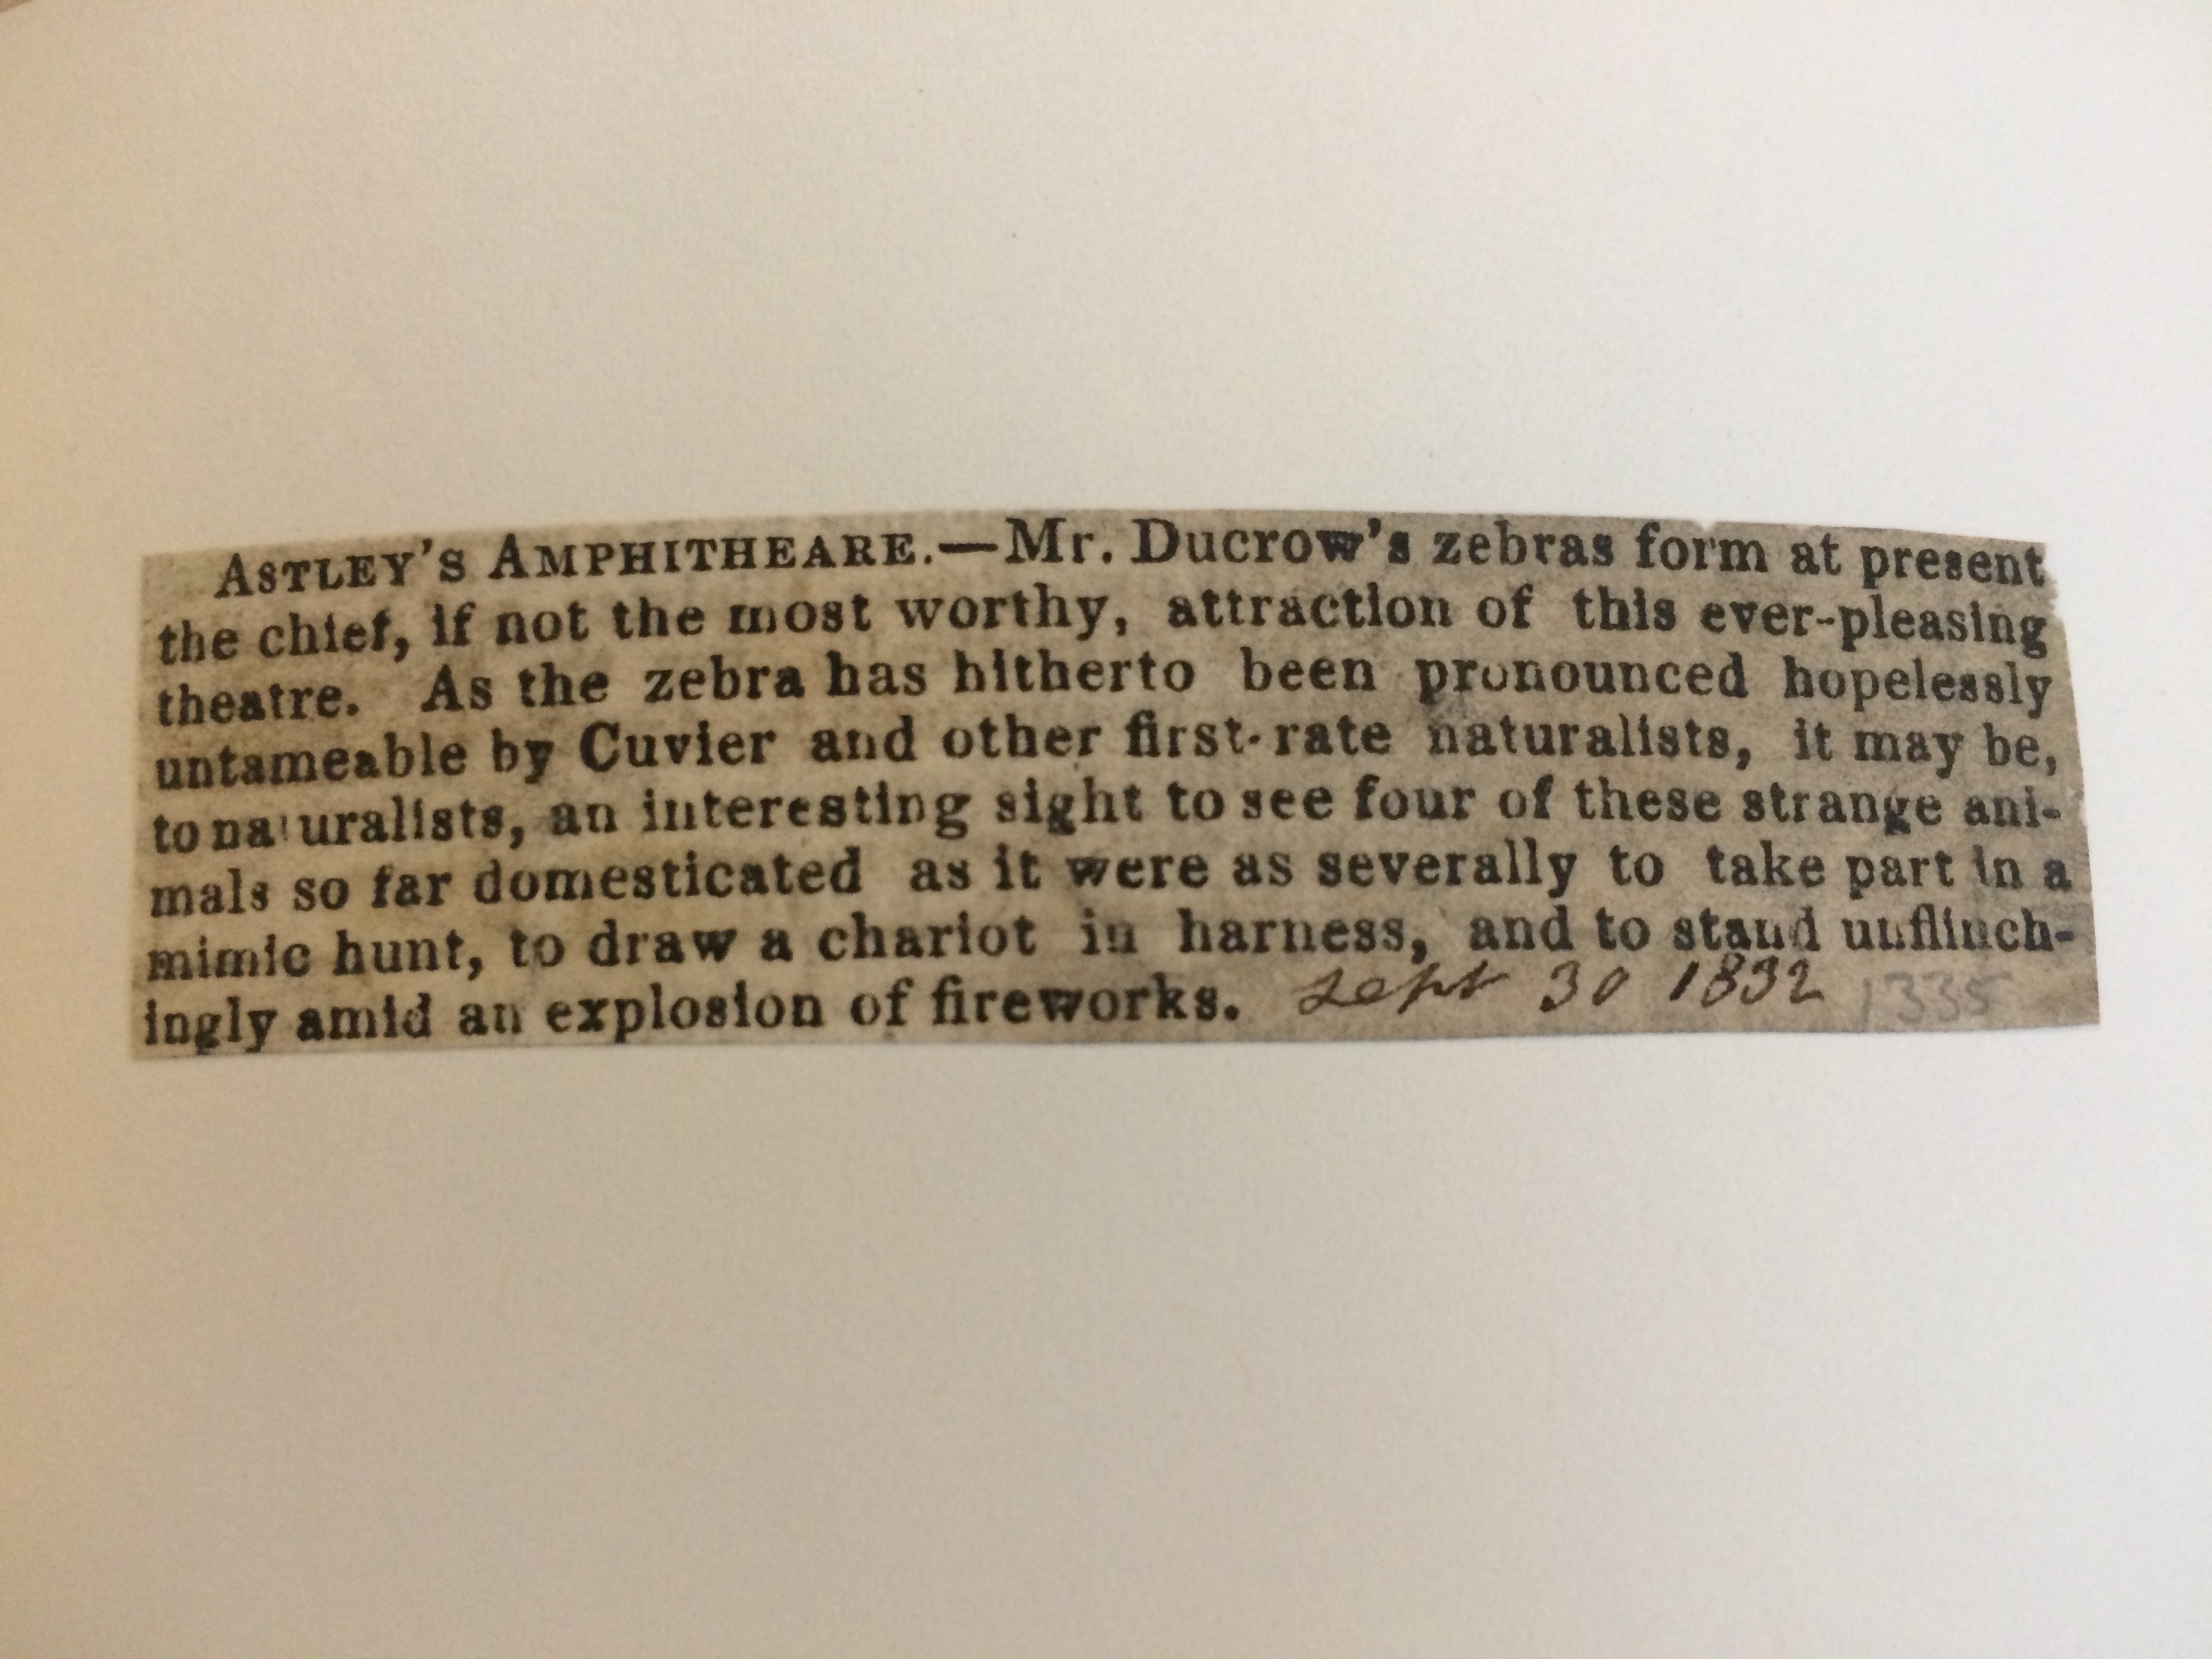 ASTLEY'S AMPHITHEARE.—Mr. Ducrow's zebras form at present
the chief, if not the most worthy, attraction of this ever-pleasing
theatre. As the zebra has hitherto been pronounced hopelessly
untameable by Cuvier and other first-rate naturalists, it may be,
to naturalists, an interesting sight to see four of these strange ani-
mals so far domesticated as it were as severally to take part in a
mimic hunt, to draw a chariot in harness, and to stand unflinch-
ingly amid an explosion of fireworks. Sept 30 1832 1335